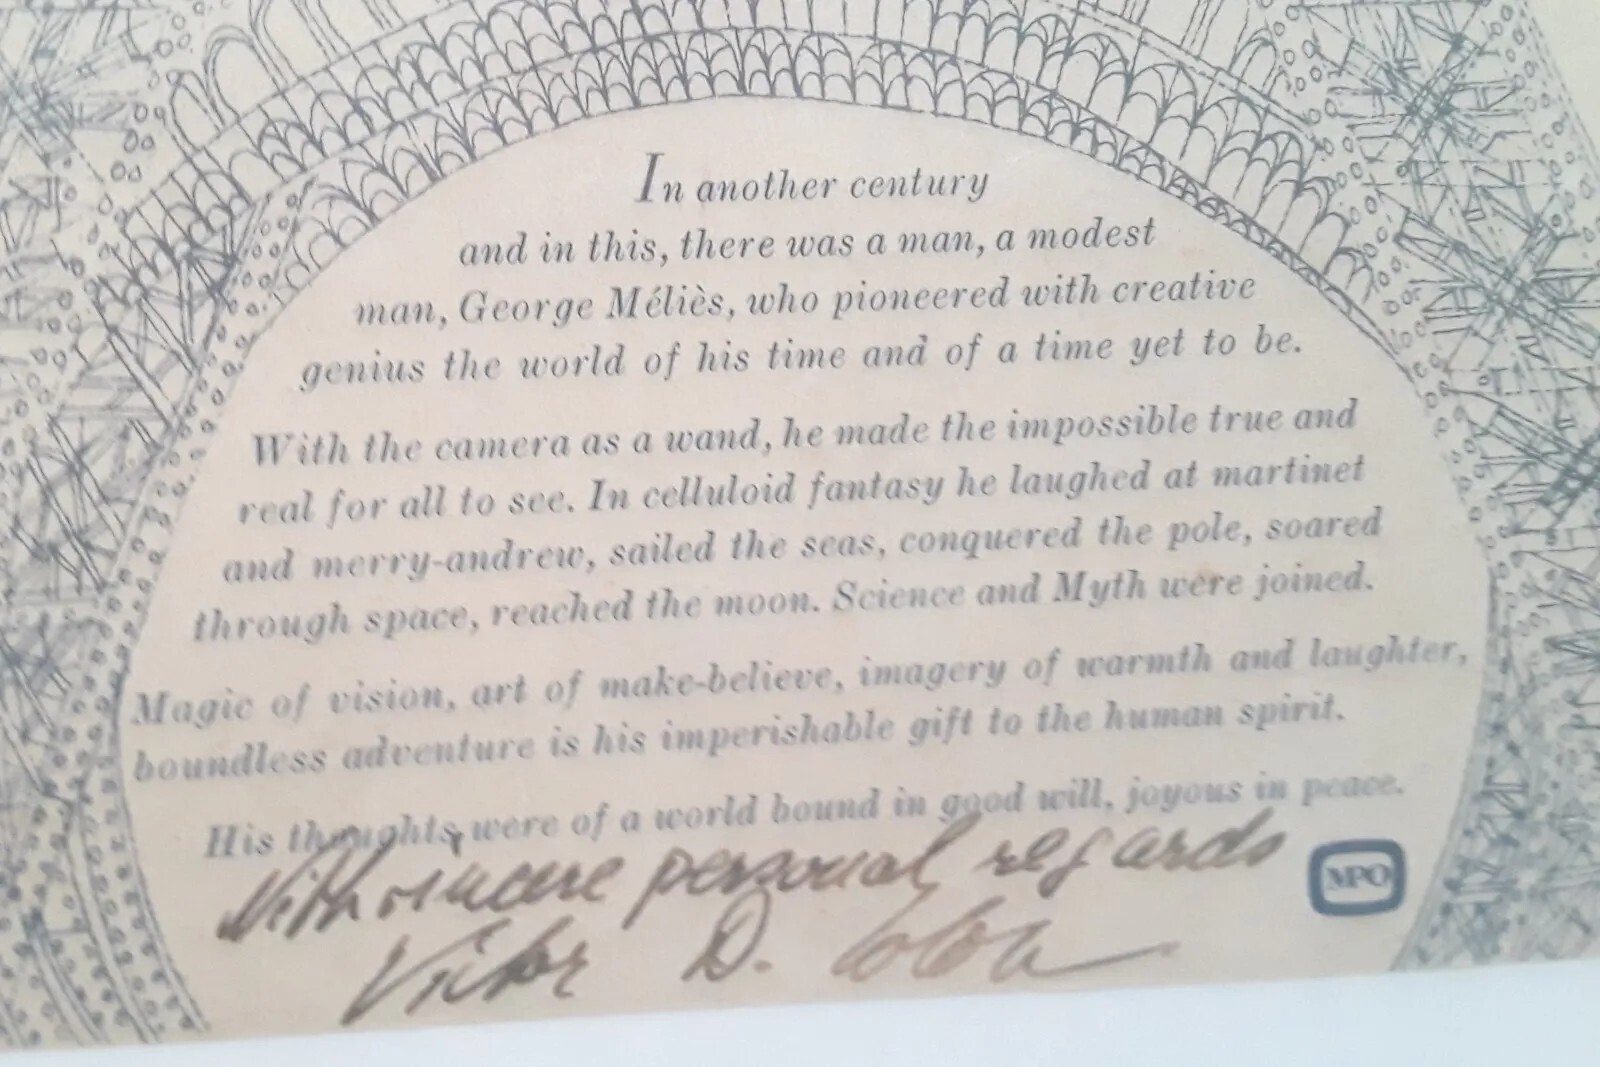 In another century
and in this, there was a man, a modest
man, George Méliès, who pioneered with creative
genius the world of his time and of a time yet to be.
With the camera as a wand, he made the impossible true and
real for all to see. In celluloid fantasy he laughed at martinet
and merry-andrew, sailed the seas, conquered the pole, soared
through space, reached the moon. Science and Myth were joined.
Magic of vision, art of make-believe, imagery of warmth and laughter,
boundless adventure is his imperishable gift to the human spirit.
His thoughts were of a world bound in good will, joyous in peace.
With sincere personal regards
MPO
Victor D.